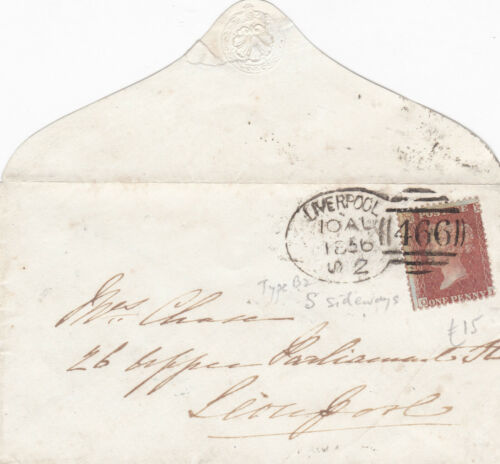 LIVERPOOL
10 AU
1856
S 2
466
ONE PENNY
Type B2
S sideways
£15
Mrs Chase
26 Upper Parliament St
Liverpool